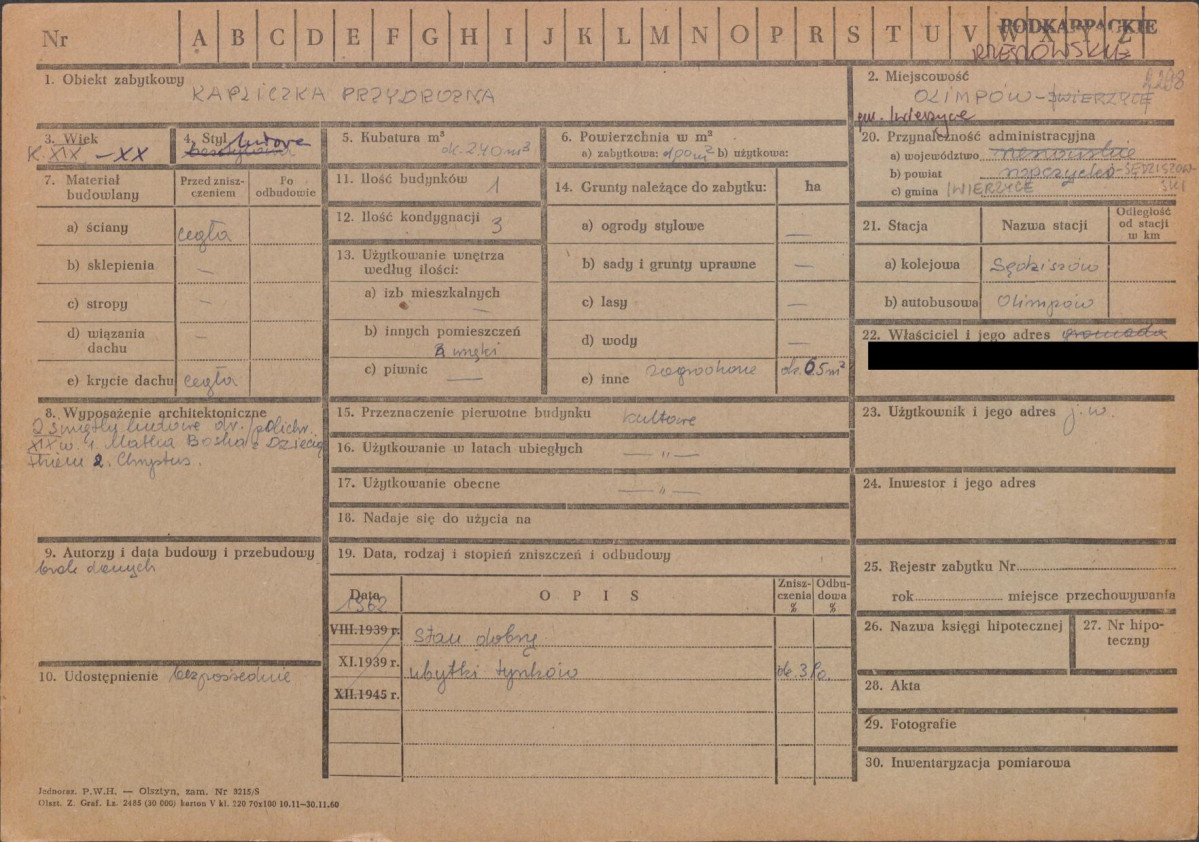 Nr A B C D E F G H I J K L M N O P R S T U V W X Y Z
PODKARPACKIE
RZESZOWSKIE
1. Obiekt zabytkowy KAPLICZKA PRZYDROŻNA
2. Miejscowość
OLIMPÓW-IWIERZYCE
gm. Iwierzyce
3. Wiek
K. XIX - XX
4. Styl ludowe
5. Kubatura m³
ok. 240 m³
6. Powierzchnia w m²
a) zabytkowa: b) użytkowa:
7. Materiał budowlany
Przed zniszczeniem
Po odbudowie
a) ściany cegła
b) sklepienia —
c) stropy —
d) wiązania dachu —
e) krycie dachu cegła
8. Wyposażenie architektoniczne
2 świątki ludowe dr. polichr.
XIX w. 1. Matka Boska z Dzieciąt
kiem 2. Chrystus.
9. Autorzy i data budowy i przebudowy
brak danych
10. Udostępnienie bezpośrednie
11. Ilość budynków 1
12. Ilość kondygnacji 3
13. Użytkowanie wnętrza według ilości:
a) izb mieszkalnych —
b) innych pomieszczeń
wnęki
c) piwnic —
14. Grunty należące do zabytku: ha
a) ogrody stylowe —
b) sady i grunty uprawne —
c) lasy —
d) wody —
e) inne zagrodzone ok. 65 m²
15. Przeznaczenie pierwotne budynku kultowe
16. Użytkowanie w latach ubiegłych — " —
17. Użytkowanie obecne — " —
18. Nadaje się do użycia na
19. Data, rodzaj i stopień zniszczeń i odbudowy
Data
OPIS
Zniszczenia %
Odbudowa %
1962
VIII.1939 r. Stan dobry
XI.1939 r. ubytki tynków ok. 3%
XII.1945 r.
20. Przynależność administracyjna
a) województwo rzeszowskie
b) powiat ropczycko-SĘDZISZOW-
SKI
c) gmina IWIERZYCE
21. Stacja
Nazwa stacji
Odległość od stacji w km
a) kolejowa Sędziszów
b) autobusowa Olimpów
22. Właściciel i jego adres gromada
23. Użytkownik i jego adres j.w.
24. Inwestor i jego adres
25. Rejestr zabytku Nr
rok miejsce przechowywania
26. Nazwa księgi hipotecznej
27. Nr hipoteczny
28. Akta
29. Fotografie
30. Inwentaryzacja pomiarowa
Jednoraz. P.W.H. — Olsztyn, zam. Nr 3215/S
Olszt. Z. Graf. Lz. 2485 (30 000) karton V kl. 220 70x100 10.11—30.11.60